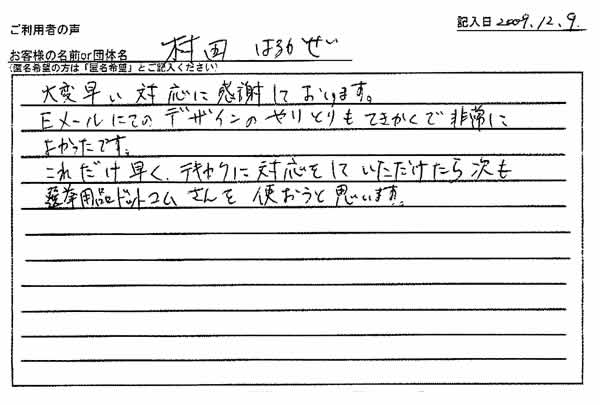 ご利用者の声
記入日 2009.12.9.
お客様の名前or団体名 村田 はるかぜ
(匿名希望の方は「匿名希望」とご記入ください)
大変早い対応に感謝しております。
Eメールにてのデザインのやりとりもてきかくで非常に
よかったです。
これだけ早く、テキカクに対応をしていただけたら次も
選挙用品ドットコムさんを使おうと思います。